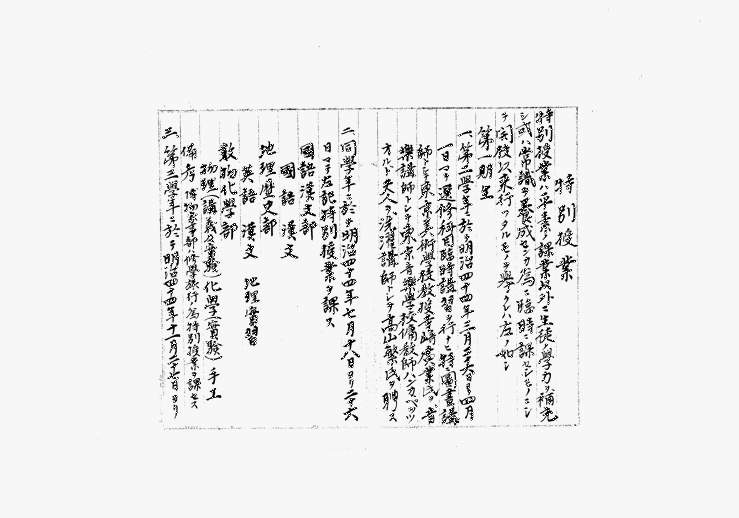 特別授業
特別授業ハ平素ノ課業以外ニ生徒ノ學力ヲ補充
シ或ハ常識ヲ養成センカ為ニ臨時ニ課セシモノニシ
テ開校以来行ヒタルモノヲ擧クレハ左ノ如シ
第一期生
一、第三學年ニ於テ明治四十四年三月二十六日ヨリ四月
一日マテ選修科目臨時講習ヲ行ナヒ特ニ圖畫講
師トシテ東京美術學校教授寺崎廣業氏ヲ音
樂講師トシテ東京音樂學校傭教師ハンカ、ペッツ
オルド夫人ヲ洗濯講師トシテ高山繁氏ヲ聘ス
二、同學年ニ於テ明治四十四年七月十八日ヨリ二十六
日マテ左記特別授業ヲ課ス
國語漢文部
國語 漢文
地理歴史部
英語 漢文 地理實習
數物化學部
物理(講義及實驗)化學(實驗) 手工
備考 博物家事部ハ修學旅行ノ為特別授業ヲ課セス
三、第三學年ニ於テ明治四十四年十一月二十七日ヨリ